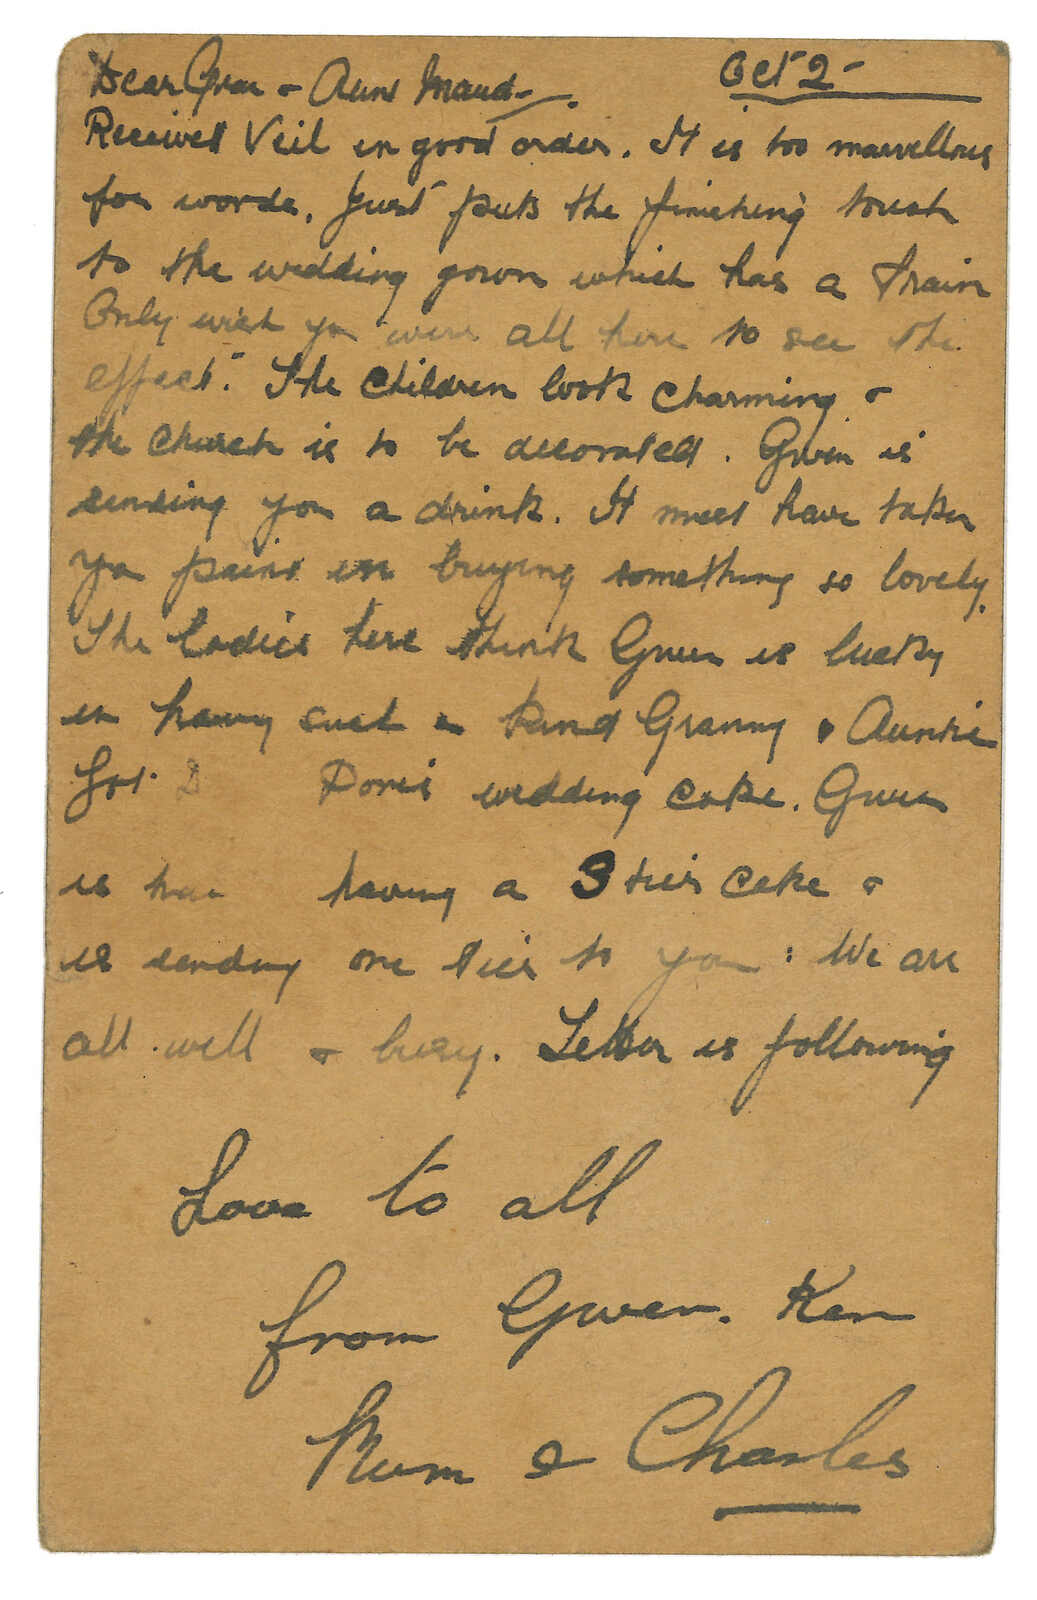 Oct 2-
Dear Gran + Aunt Maud-.
Received Veil in good order. It is too marvellous
for words. Just puts the finishing touch
to the wedding gown which has a train
Only wish you were all here to see the
effect. The children look charming +
the church is to be decorated. Gwen is
sending you a drink. It must have taken
you pains in buying something so lovely.
The ladies here think Gwen is lucky
in having such a kind Granny & Auntie
Got D Doris wedding cake. Gwen
is hav having a 3 tier cake +
is sending one tier to you : We are
all well + busy. Letter is following
Love to all
from Gwen. Ken
Mum & Charles